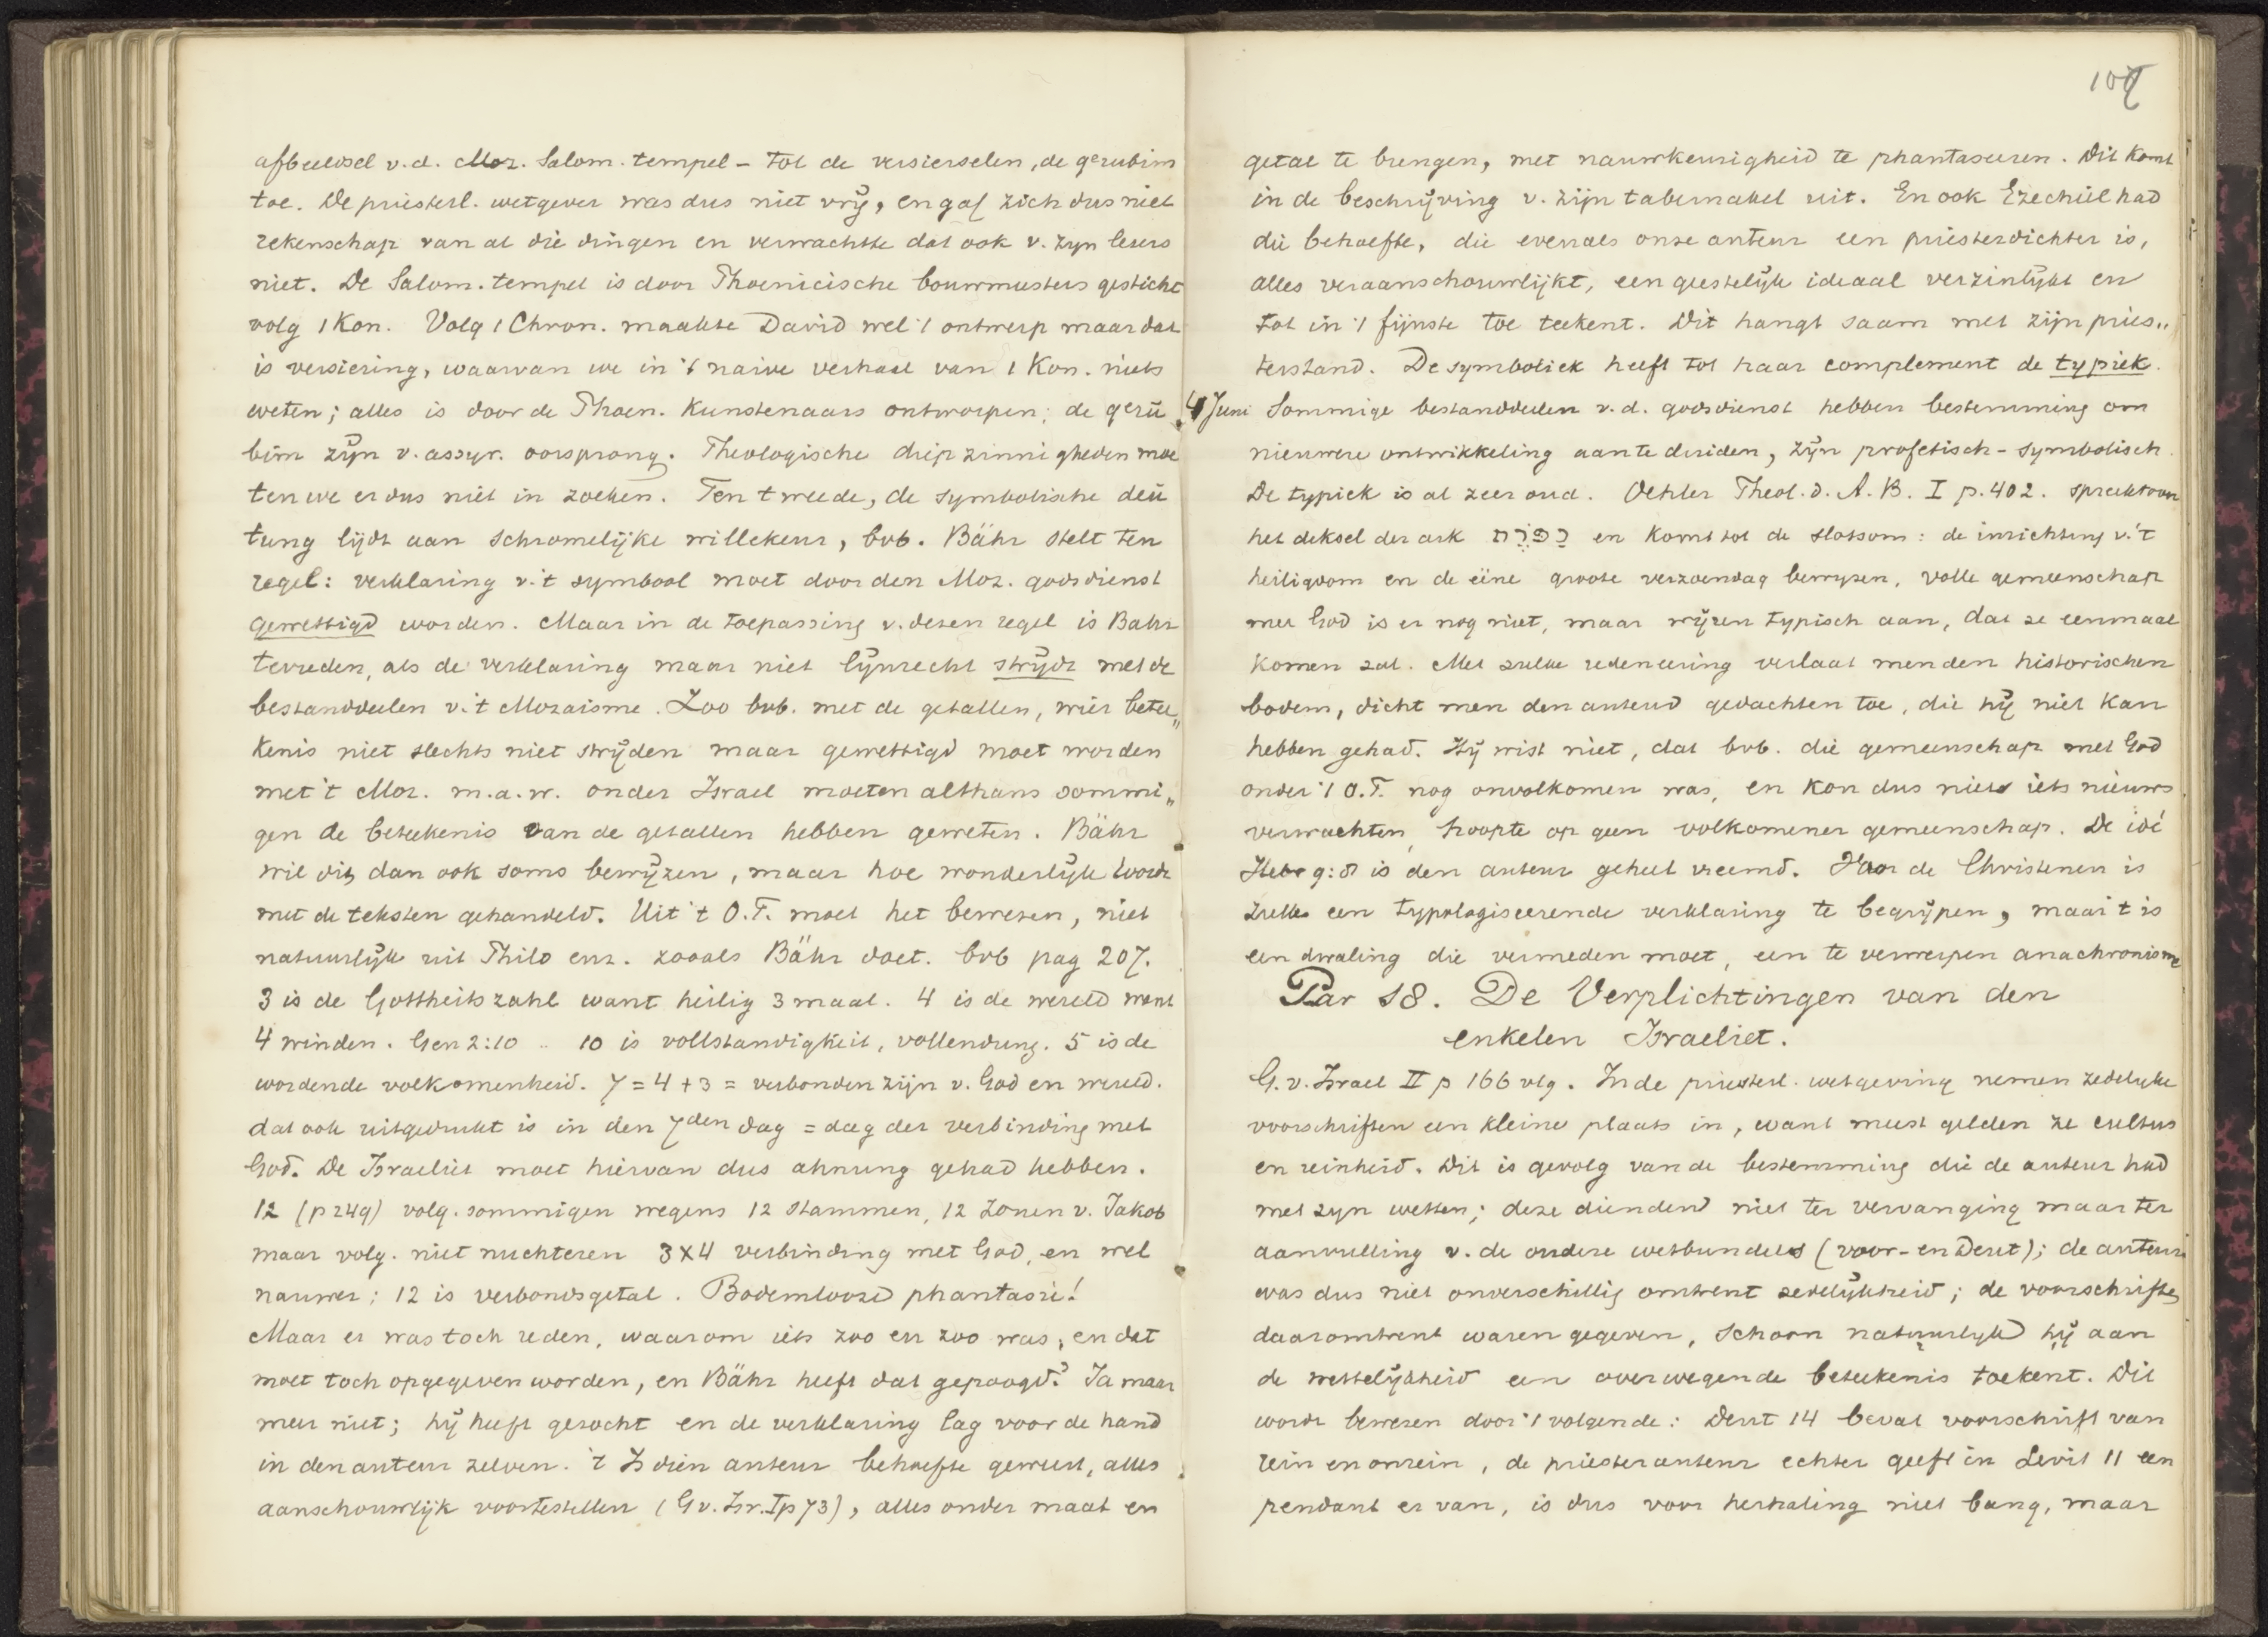 afbeeldsel v.d. Moz. Salom. tempel – tot de versierselen, de gerubim
toe. De priesterl. wetgever was dus niet vrij, en gaf zich dus niet
rekenschap van al die dingen en verwachtte dat ook v. zyn lezers
niet. De Salom. tempel is door Phoenicische bouwmeesters gesticht
volg 1 Kon. Volg 1 Chron. maakte David wel 't ontwerp maar dat
is versiering, waarvan we in 't naive verhaal van 1 Kon. niets
weten; alles is door de Phoen. Kunstenaars ontworpen; de gerū
bim zijn v. assyr. oorsprong. Theologische diepzinnigheden moe
ten we er dus niet in zoeken. Ten tweede, de symbolische deū
tung lijdt aan schromelijke willekeur, bvb. Bähr stelt ten
regel: verklaring v. 't symbool moet door den Moz. godsdienst
gewettigd worden. Maar in de toepassing v. dezen regel is Bähr
tevreden, als de verklaring maar niet lijnrecht strijdt met de
bestanddeelen v. 't Mozaisme. Zoo bvb. met de getallen, wier betee„
kenis niet slechts niet strijden maar gewettigd moet worden
met 't Moz. m.a.w. onder Israel moeten althans sommi„
gen de beteekenis van de getallen hebben geweten. Bähr
wil dit dan ook soms bewijzen, maar hoe wonderlijk wordt
met de teksten gehandeld. Uit 't O.T. moet het bewezen, niet
natuurlijk uit Philo enz. zooals Bähr doet. bvb pag 207.
3 is de Gottheitszahl want heilig 3 maal. 4 is de wereld want
4 winden. Gen 2:10 .. 10 is vollstandigkeit, vollendung. 5 is de
wordende volkomenheid. 7 = 4 + 3 = verbonden zijn v. God en wereld.
dat ook uitgedrukt is in den 7den dag = dag der verbinding met
God. De Israeliet moet hiervan dus ahnung gehad hebben.
12 (p 249) volg. sommigen wegens 12 stammen, 12 zonen v. Jakob
maar volg. niet nuchteren 3x4 verbinding met God, en wel
nauwer; 12 is verbondsgetal. Bodemlooze phantasie!
Maar er was toch reden, waarom iets zoo en zoo was, en dat
moet toch opgegeven worden, en Bähr heeft dat gepoogd? Ja maar
meer niet; hij heeft gezocht en de verklaring lag voor de hand
in den auteur zelven. 't Is dien auteur behoefte geweest, alles
aanschouwlijk voortestellen (G v. Isr. I p 73), alles onder maat en
107
getal te brengen, met nauwkeurigheid te phantaseeren. Dit komt
in de beschrijving v. zijn tabernakel uit. En ook Ezechiel had
die behoefte, die evenals onze auteur een priesterdichter is,
alles veraanschouwlijkt, een geestelijk ideaal verzinlijkt en
tot in 't fijnste toe teekent. Dit hangt saam met zijn pries„
terstand. De symboliek heeft tot haar complement de typiek.
4 Juni Sommige bestanddeelen v.d. godsdienst hebben bestemming om
nieuwere ontwikkeling aan te duiden, zijn profetisch-symbolisch.
De typiek is al zeer oud. Oehler Theol. d. A. B. I p. 402. spreekt van
het deksel der ark כַּפֹּרֶת en komt tot de slotsom: de inrichting v. 't
heiligdom en de eene groote verzoendag bewyzen, volle gemeenschap
met God is er nog niet, maar wijzen typisch aan, dat ze eenmaal
komen zal. Met zulke redeneering verlaat men den historischen
bodem, dicht men den auteur gedachten toe, die hij niet kan
hebben gehad. Hij wist niet, dat bvb. die gemeenschap met God
onder 't O.T. nog onvolkomen was, en kon dus niets nieuws
verwachten, hoopte op geen volkomener gemeenschap. De idé
Hebr 9:8 is den auteur geheel vreemd. Voor de Christenen is
zulk een typologiseerende verklaring te begrijpen, maar 't is
een dwaling die vermeden moet, een te verwerpen anachronisme
Par 18. De Verplichtingen van den
enkelen Israeliet.
G. v. Israel II p 166 vlg. In de priesterl. wetgeving nemen zedelyke
voorschriften een kleine plaats in, want meest gelden ze cultus
en reinheid. Dit is gevolg van de bestemming die de auteur had
met zyn wetten; deze dienden niet ter vervanging maar ter
aanvulling v. de oudere wetbundels (voor- en Deut); de auteur
was dus niet onverschillig omtrent zedelijkheid; de voorschriften
daaromtrent waren gegeven, schoon natuurlyk hij aan
de wettelijkheid een overwegende beteekenis toekent. Dit
wordt bewezen door 't volgende: Deut 14 bevat voorschrift van
rein en onrein, de priesterauteur echter geeft in Levit 11 een
pendant er van, is dus voor herhaling niet bang, maar